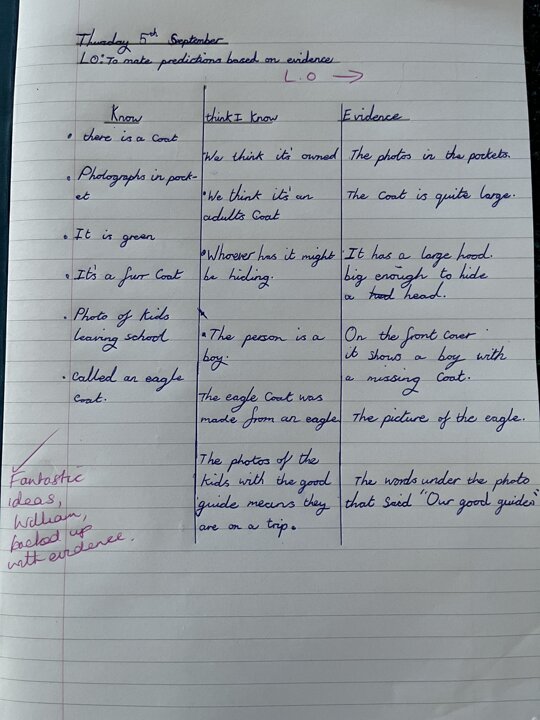 Thursday 5th September
LO: To make predictions based on evidence
L.O →
Know
• there is a coat
• Photographs in pock-
et
• It is green
• It's a furr Coat
• Photo of kids
leaving school
• called an eagle
coat.
think I know
We think it's owned
• We think it's an
adults Coat
• Whoever has it might
be hiding.
• The person is a
boy.
The eagle Coat was
made from an eagle
The photos of the
kids with the good
guide means they
are on a trip.
Evidence
The photos in the pockets.
The Coat is quite large.
It has a large hood.
big enough to hide
a head.
On the front cover
it shows a boy with
a missing Coat.
The picture of the eagle.
The words under the photo
that said "Our good guides"
Fantastic
ideas,
William,
backed up
with evidence.